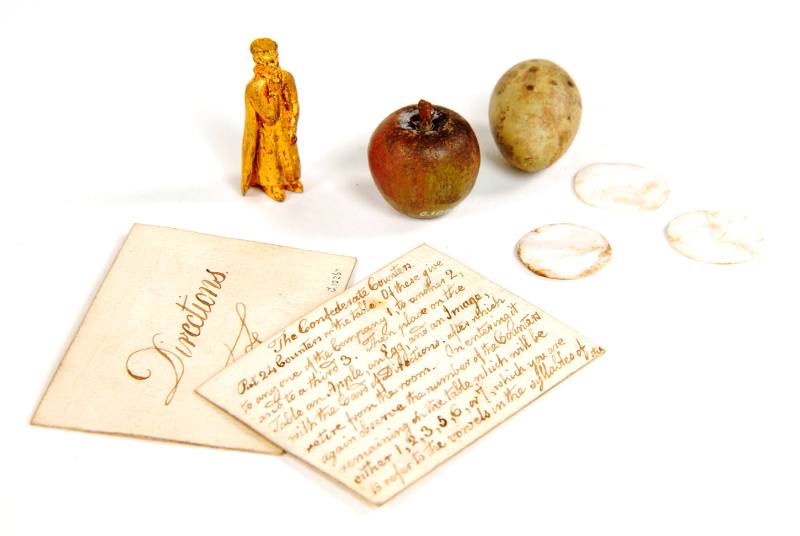 Directions.
The Confederate Counters.
Put 24 Counters on the table. Of these give
to any one of the company 1, to another 2,
and to a third 3. Then place on the
Table an Apple an Egg, and an Image,
with the Card of Directions. after which
retire from the room. On entering it
again observe the number of the Counters
remaining on the table, which will be
either 1, 2, 3, 5, 6, or 7, which you are
to refer to the vowels in the syllables of the